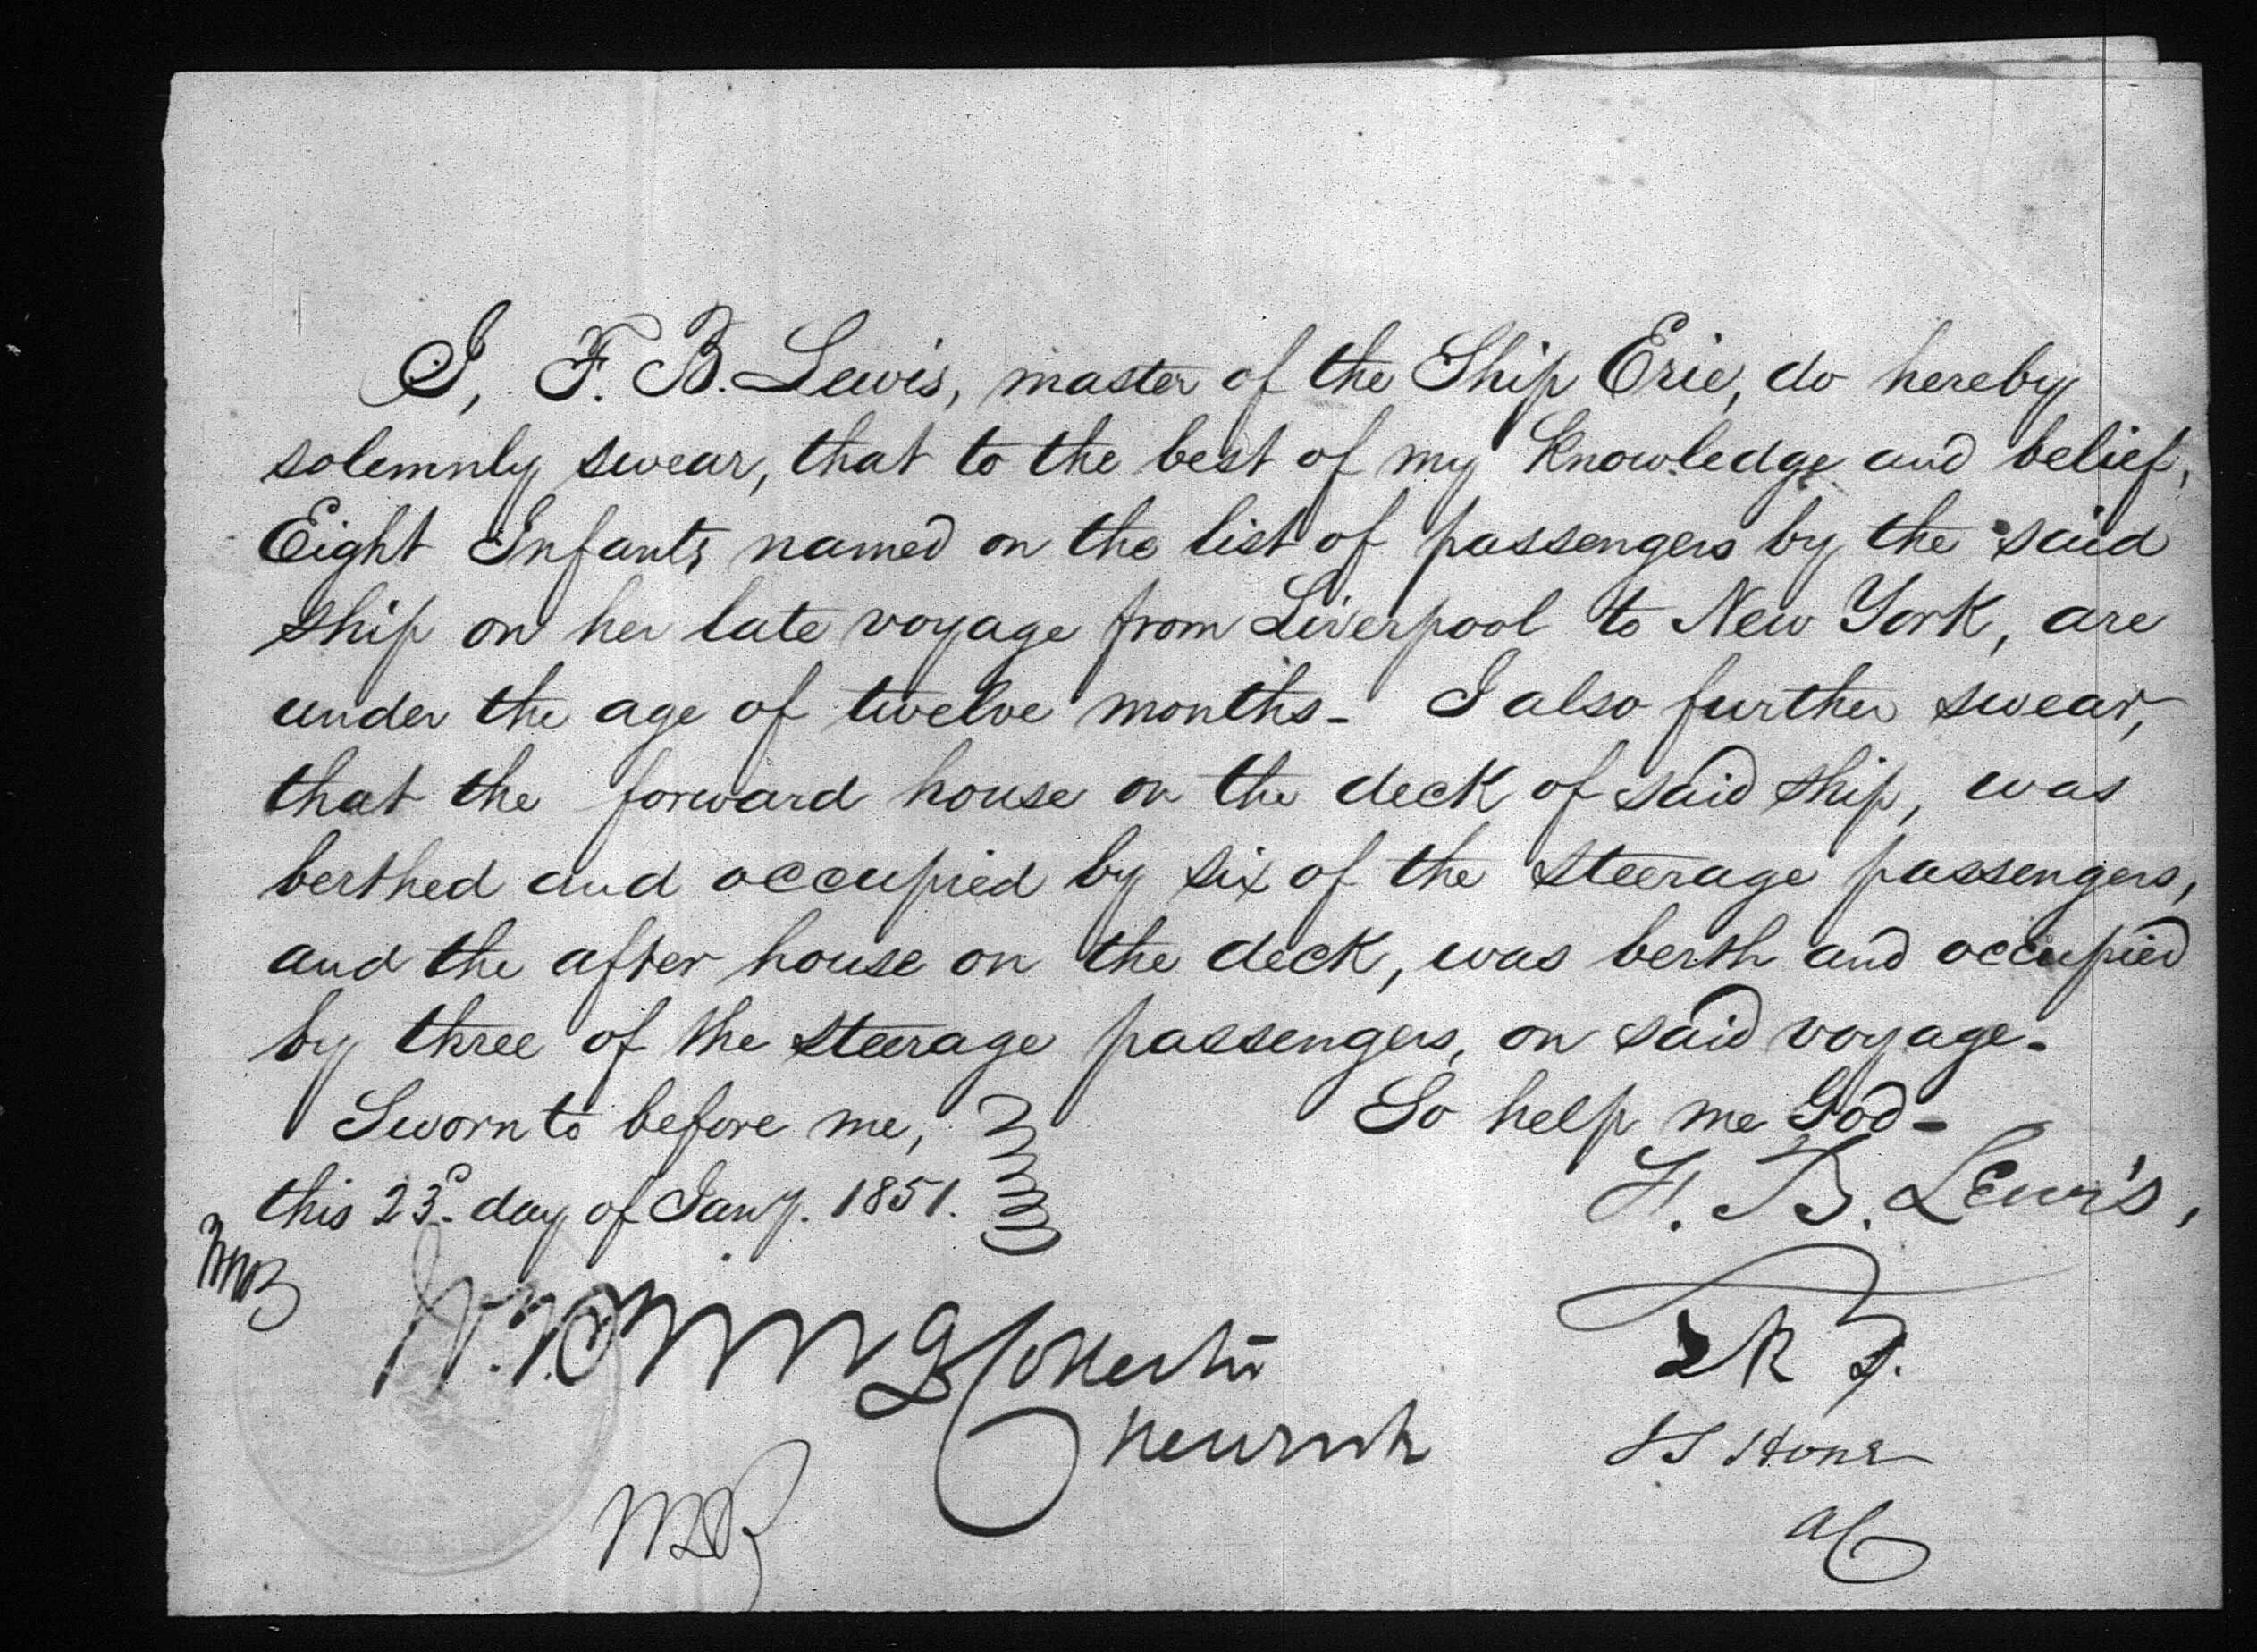 I, F. B. Lewis, master of the Ship Erie, do hereby
solemnly swear, that to the best of my knowledge and belief,
Eight Infants named on the list of passengers by the said
ship on her late voyage from Liverpool to New York, are
under the age of twelve months- I also further swear,
that the forward house on the deck of said ship, was
berthed and occupied by six of the steerage passengers,
and the after house on the deck, was berth and occupied
by three of the steerage passengers, on said voyage-
Sworn to before me, So help me God-
this 23d. day of Jany. 1851.
F. B. Lewis,
Collector